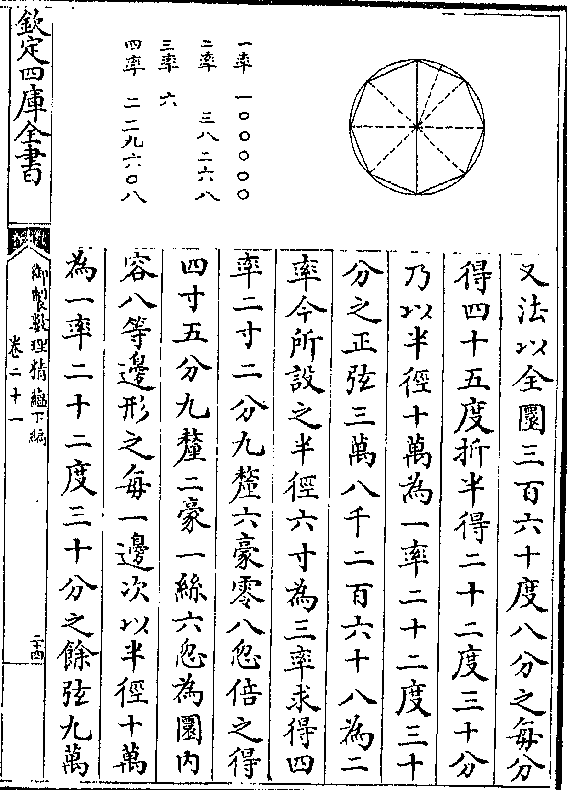 一率　一〇〇〇〇〇
二率　三八二六八
三率　六
四率　二二九六〇八
又法以全圜三百六十度八分之每分
得四十五度折半得二十二度三十分
乃以半徑十萬為一率二十二度三十
分之正弦三萬八千二百六十八為二
率今所設之半徑六寸為三率求得四
率二寸二分九釐六豪零八忽倍之得
四寸五分九釐二豪一絲六忽為圜内
容八等邊形之每一邊次以半徑十萬
為一率二十二度三十分之餘弦九萬
欽定四庫全書
御製數理精藴下編
卷二十一
二十四